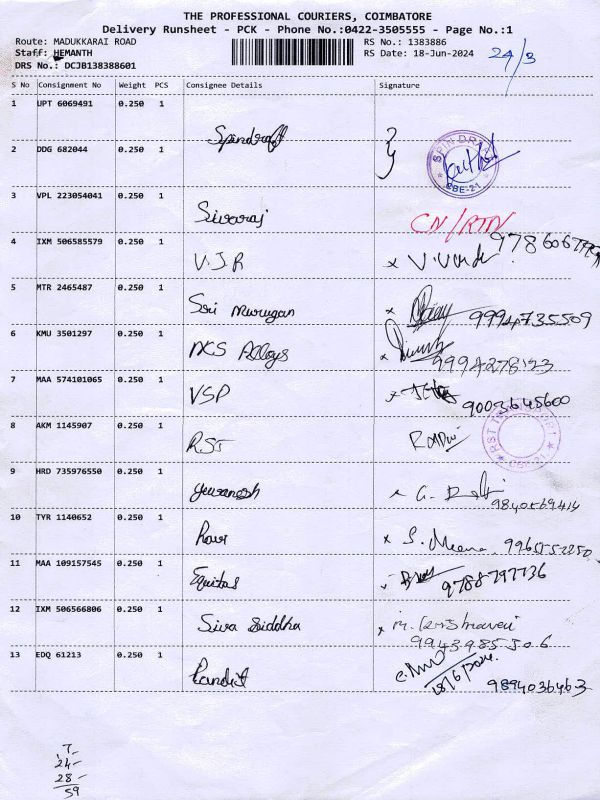 THE PROFESSIONAL COURIERS, COIMBATORE
Delivery Runsheet - PCK - Phone No.:0422-3505555 - Page No.:1
Route: MADUKKARAI ROAD
Staff: HEMANTH
DRS No.: DCJB138388601
RS No.: 1383886
RS Date: 18-Jun-2024
24/3
S No Consignment No Weight PCS Consignee Details Signature
1 UPT 6069491 0.250 1 Spindraft
2 DDG 682044 0.250 1
SPIN DRAFT
CBE-21
3 VPL 223054041 0.250 1 Sivaraj CN/RTN
4 IXM 506585579 0.250 1 V.J.R
5 MTR 2465487 0.250 1 Sri Murugan 9994735509
6 KMU 3501297 0.250 1 NCS Alloys
7 MAA 574101065 0.250 1 VSP 9003645600
8 AKM 1145907 0.250 1 RST
CBE-21
9 HRD 735976550 0.250 1 Yuvanesh
10 TYR 1140652 0.250 1 Ravi S. Meena
11 MAA 109157545 0.250 1 Equitas
12 IXM 506566806 0.250 1 Siva Siddha 9943985506
13 EDQ 61213 0.250 1 Pandit 9894036463
7-
24-
28-
59